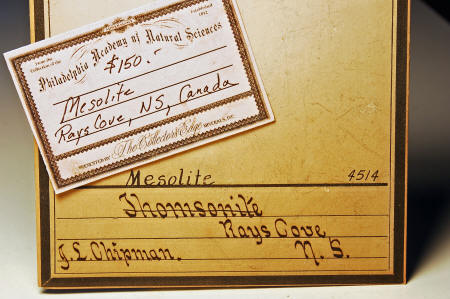 From the
Collection of the
Established
1812
Philadelphia Academy of Natural Sciences
$150.-
Mesolite
Rays Cove, NS, Canada
PRESENTED BY The Collector's Edge MINERALS, INC.
Mesolite 4514
Thomsonite
Rays Cove
J.L. Chipman. N. S.